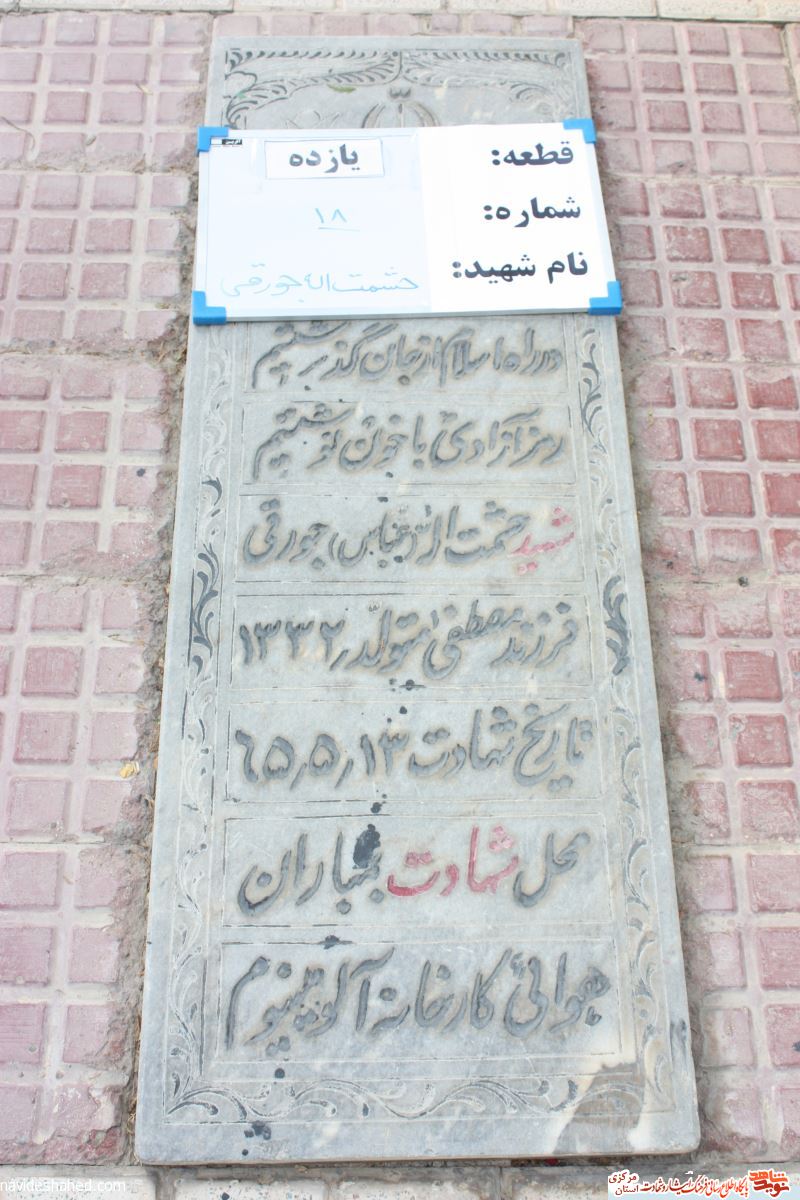 الله
قطعه: یازده
شماره: ۱۸
نام شهید: حشمت اله جورقی
در راه اسلام از جان گذر بر شتیم
رمز آزادی با خون نوشتیم
شهید حشمت الله (عباس) جورقی
فرزند مصطفی متولد ۱۳۳۲
تاریخ شهادت ۶۵٫۵٫۱۳
محل شهادت بمباران
هوائی کارخانه آلومینیوم
navideshahed.com
نوید شاهد
پایگاه اطلاع رسانی فرهنگ ایثار و شهادت استان مرکزی